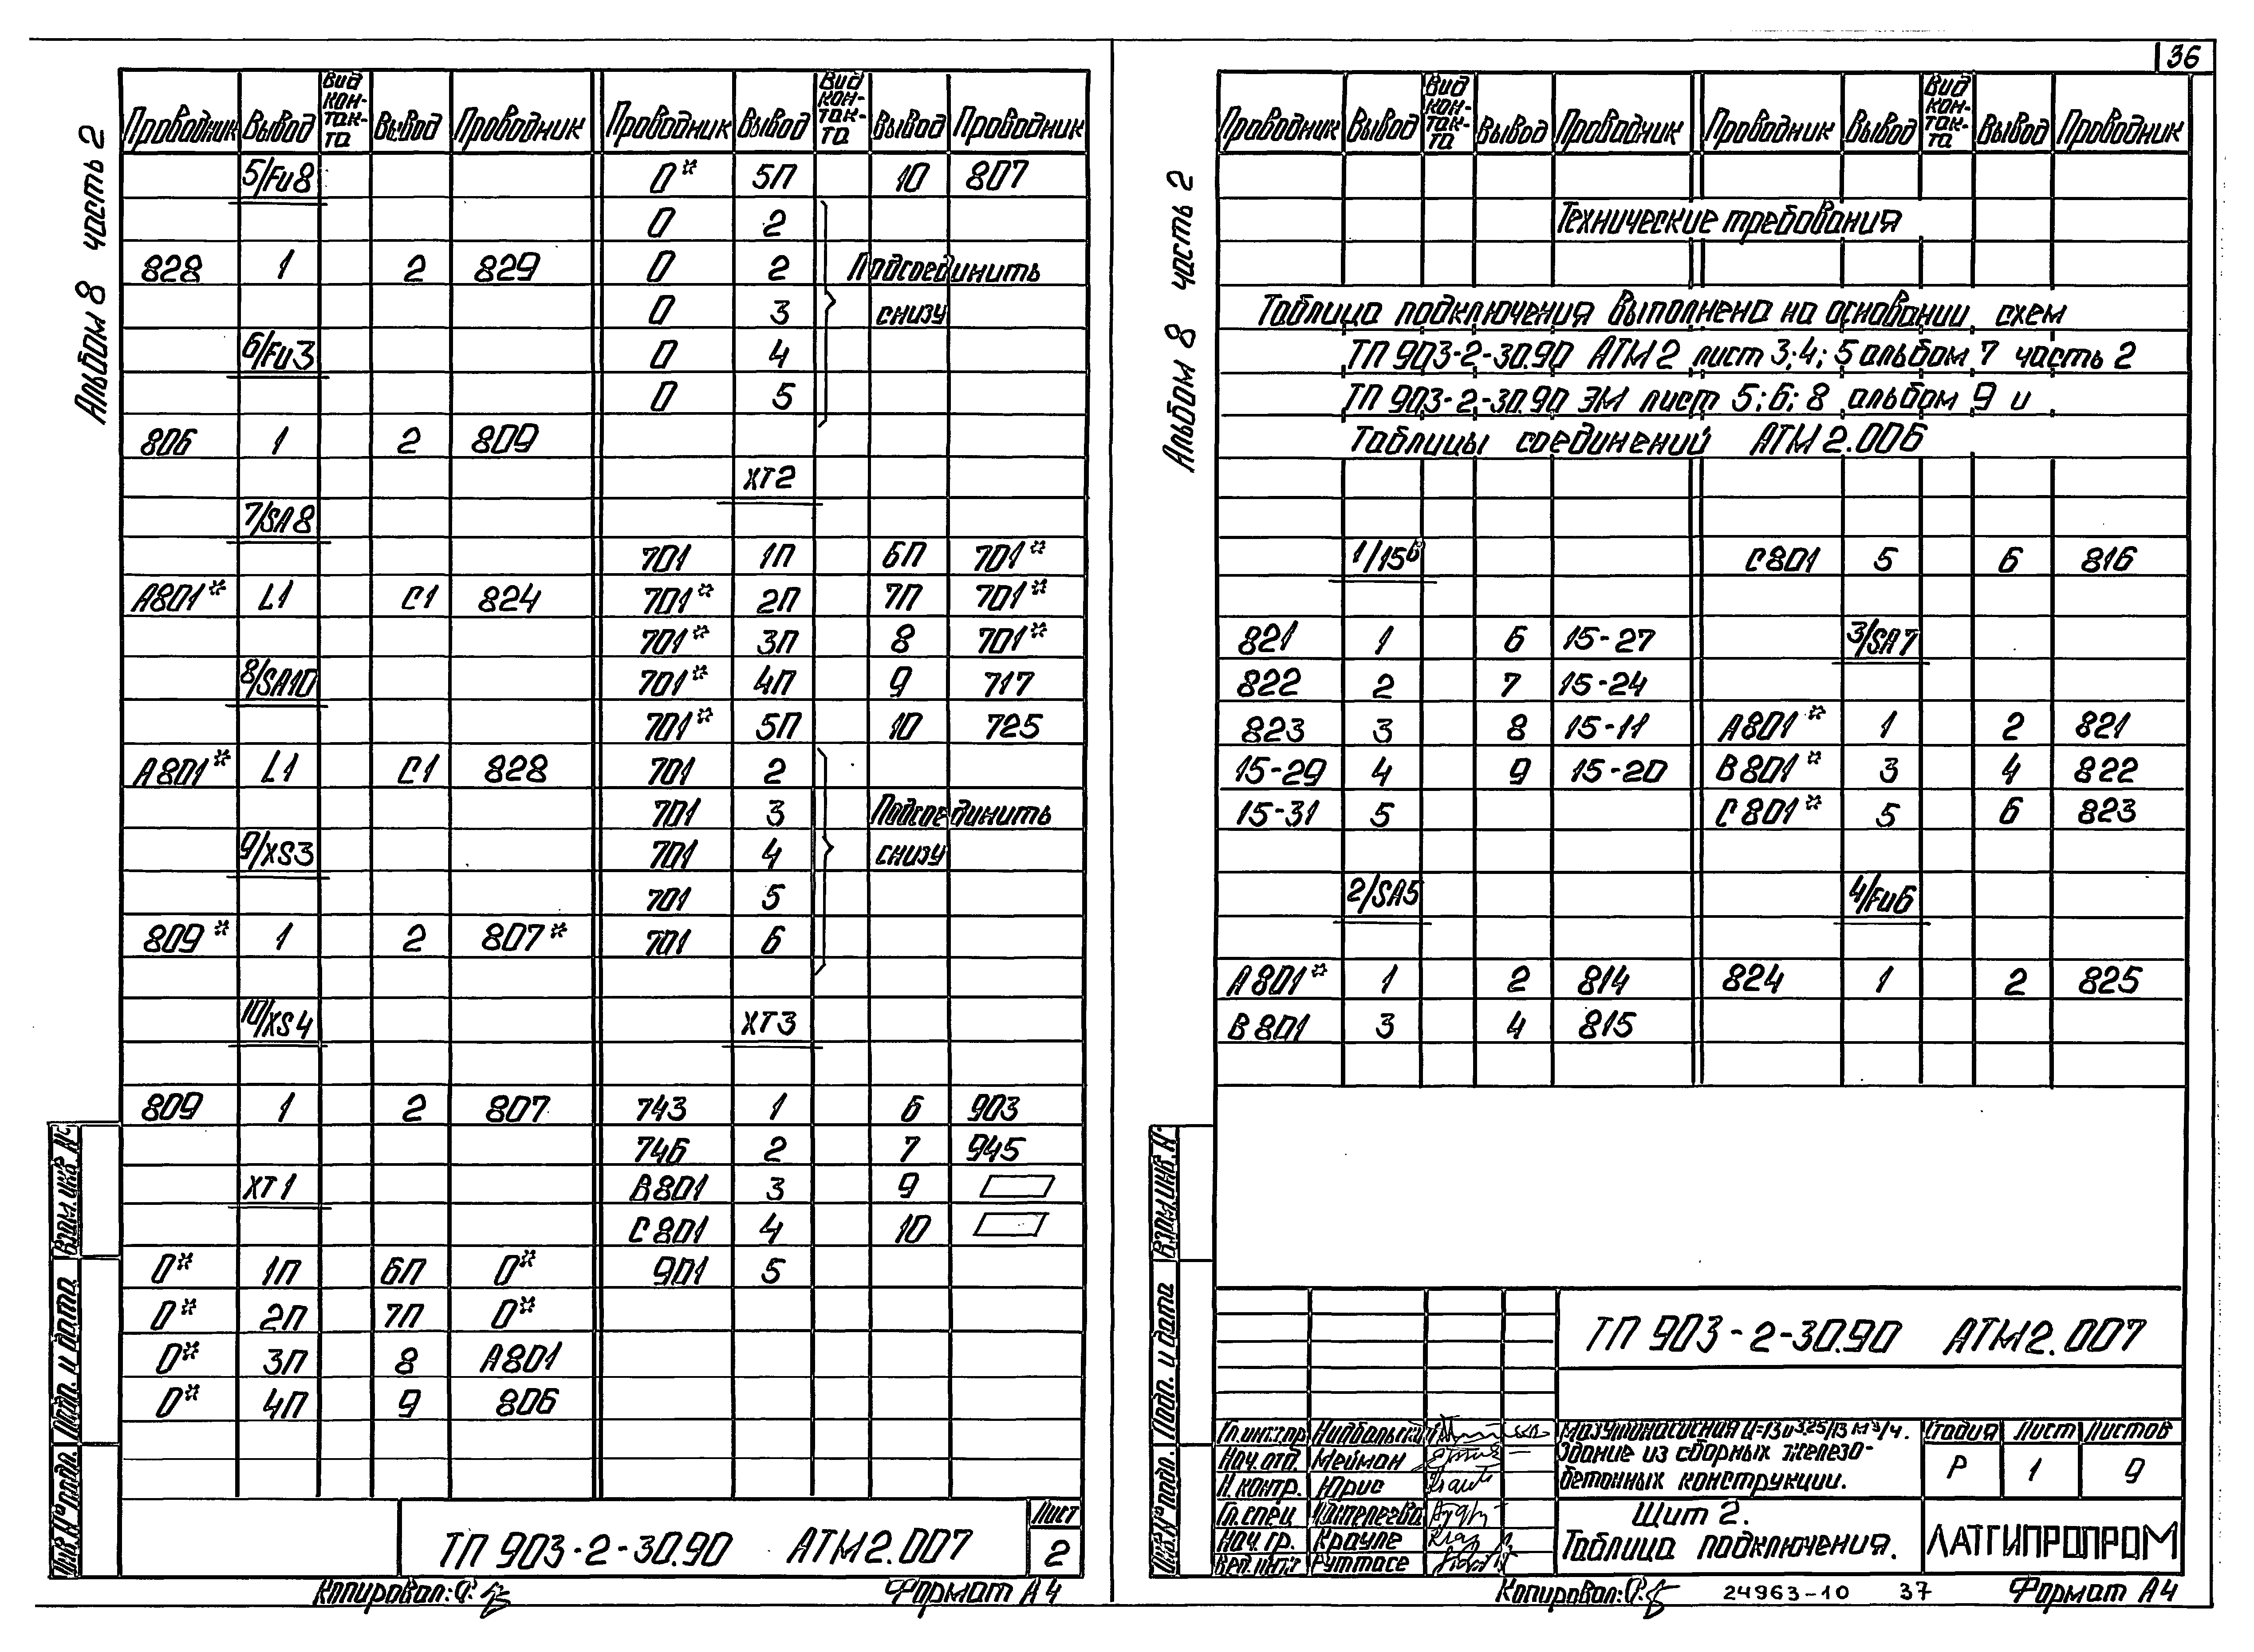 36
Альбом 8 часть 2
Проводник Вывод Вид кон-так-та Вывод Проводник Проводник Вывод Вид кон-так-та Вывод Проводник
5/Fu8 0* 5П 10 807
0 2
828 1 2 829 0 2 Подсоединить
0 3 снизу
6/Fu3 0 4
0 5
806 1 2 809
ХТ2
7/SA8
701 1П 6П 701*
А801* L1 С1 824 701* 2П 7П 701*
701* 3П 8 701*
8/SA10 701* 4П 9 717
701* 5П 10 725
А801* L1 С1 828 701 2
701 3 Подсоединить
9/XS3 701 4 снизу
701 5
809* 1 2 807* 701 6
10/XS4 ХТ3
809 1 2 807 743 1 6 903
746 2 7 945
ХТ1 В801 3 9
С801 4 10
0* 1П 6П 0* 901 5
0* 2П 7П 0*
0* 3П 8 А801
0* 4П 9 806
Взам. инв. №
Подп. и дата
Инв. № подл.
ТП 903-2-30.90 АТМ2.007
Лист
2
Копировал:
Формат А4
Альбом 8 часть 2
Проводник Вывод Вид кон-так-та Вывод Проводник Проводник Вывод Вид кон-так-та Вывод Проводник
Технические требования
Таблица подключения выполнена на основании схем
ТП 903-2-30.90 АТМ2 лист 3;4;5 альбом 7 часть 2
ТП 903-2-30.90 ЭМ лист 5;6;8 альбом 9 и
Таблицы соединений АТМ2.006
1/15б С801 5 6 816
821 1 6 15-27 3/SA7
822 2 7 15-24
823 3 8 15-11 А801* 1 2 821
15-29 4 9 15-20 В801* 3 4 822
15-31 5 С801* 5 6 823
2/SA5 4/Fu6
А801* 1 2 814 824 1 2 825
В801 3 4 815
Взам. инв. №
Подп. и дата
Инв. № подл.
ТП 903-2-30.90 АТМ2.007
Гл. инж. пр.
Нач. отд. Мейман
Н. контр. Юрис
Гл. спец
Нач. гр. Крауле
Вед. инж. Руттасе
Мазутонасосная Q=13и3.25/13 м³/ч.
Здание из сборных железо-
бетонных конструкции.
Щит 2.
Таблица подключения.
Стадия Лист Листов
Р 1 9
ЛАТГИПРОПРОМ
Копировал: 24963-10 37 Формат А4